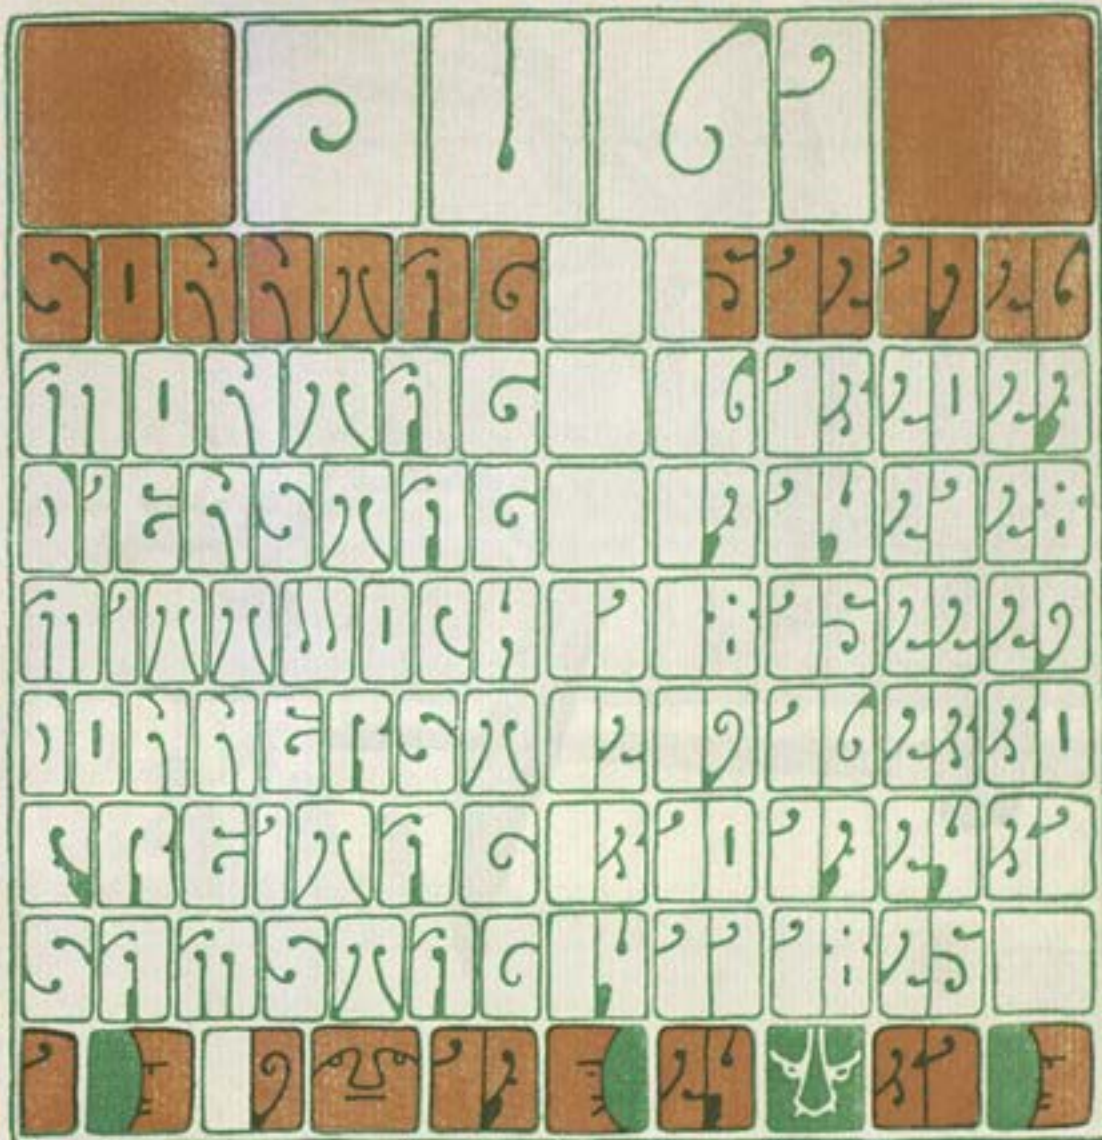 JULI
SONNTAG 5 12 19 26
MONTAG 6 13 20 27
DIENSTAG 7 14 21 28
MITTWOCH 1 8 15 22 29
DONNERST 2 9 16 23 30
FREITAG 3 10 17 24 31
SAMSTAG 4 11 18 25
1 9 17 24 31